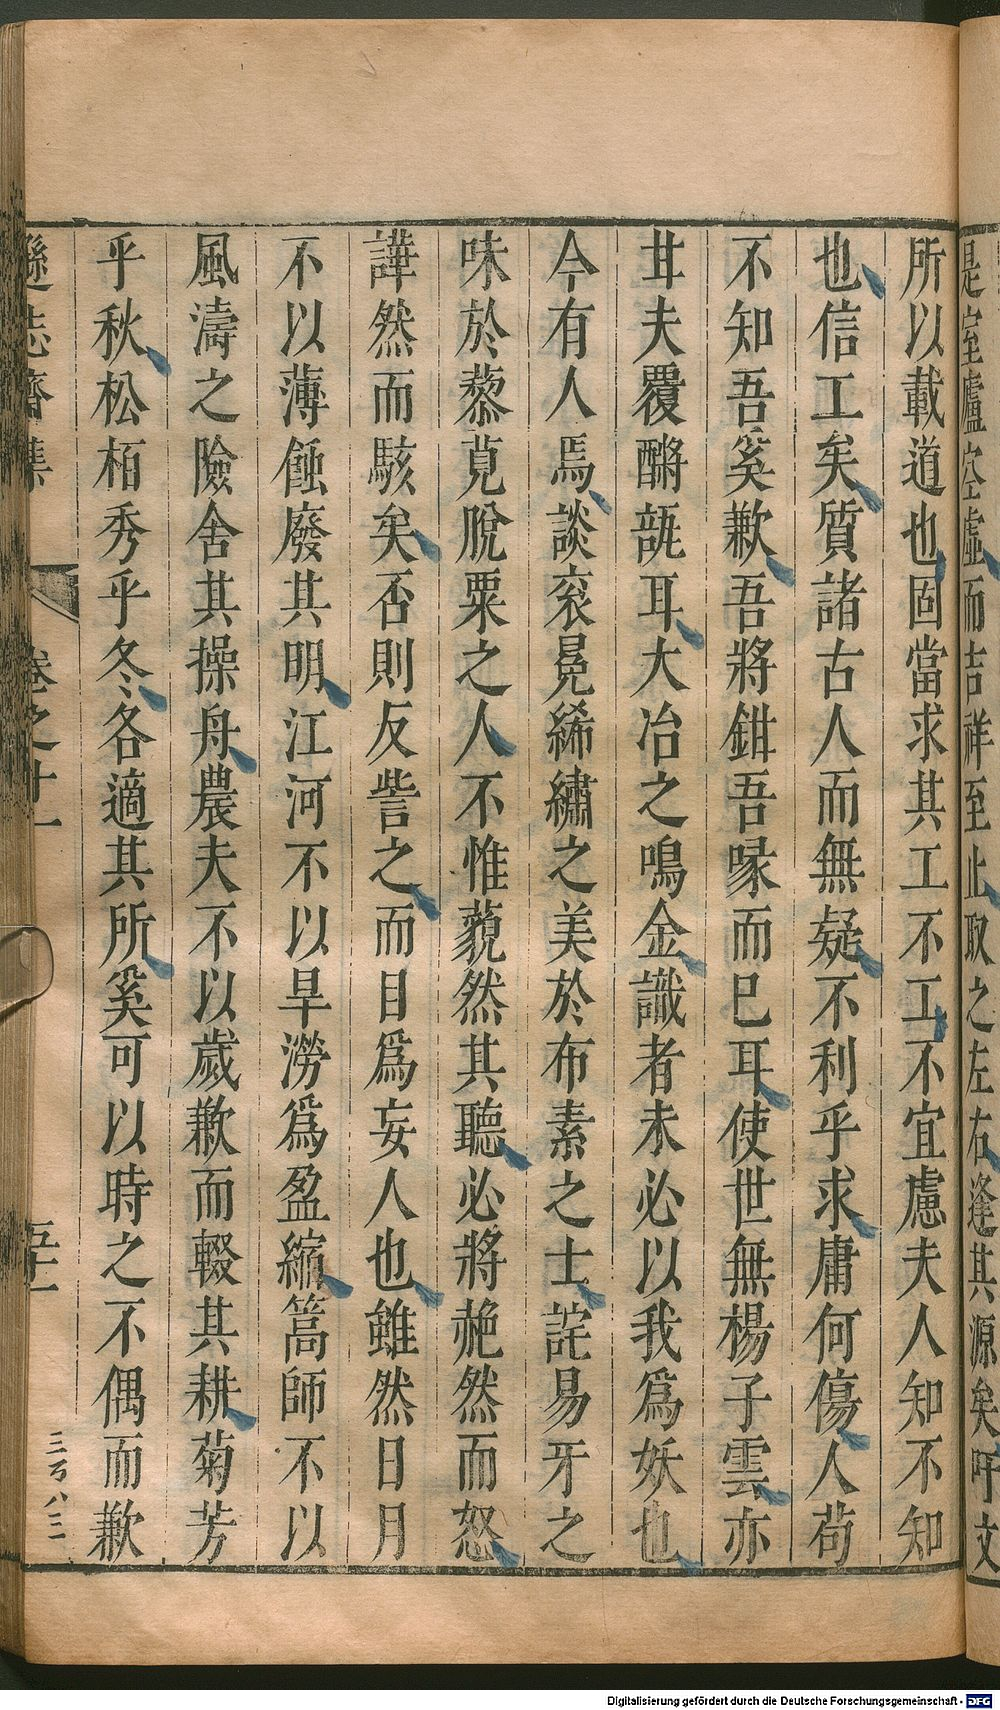 是室廬空虛而吉祥至止取之左右逢其源矣吁文
所以載道也固當求其工不工不宜慮夫人知不知
也信工矣質諸古人而無疑不利乎求庸何傷人苟
不知吾奚歉吾將鉗吾喙而已耳使世無楊子雲亦
甘夫覆醬瓿耳大冶之鳴金識者未必以我爲妖也
今有人焉談衮冕絺繡之美於布素之士詫易牙之
味於藜莧脫粟之人不惟藐然其聽必將艴然而怒
譁然而駭矣否則反訾之而目爲妄人也雖然日月
不以薄蝕廢其明江河不以旱澇爲盈縮篙師不以
風濤之險舍其操舟農夫不以歲歉而輟其耕菊芳
乎秋松栢秀乎冬各適其所奚可以時之不偶而歉
遜志齋集 卷之十一 五十一
三百八三
Digitalisierung gefördert durch die Deutsche Forschungsgemeinschaft - DFG